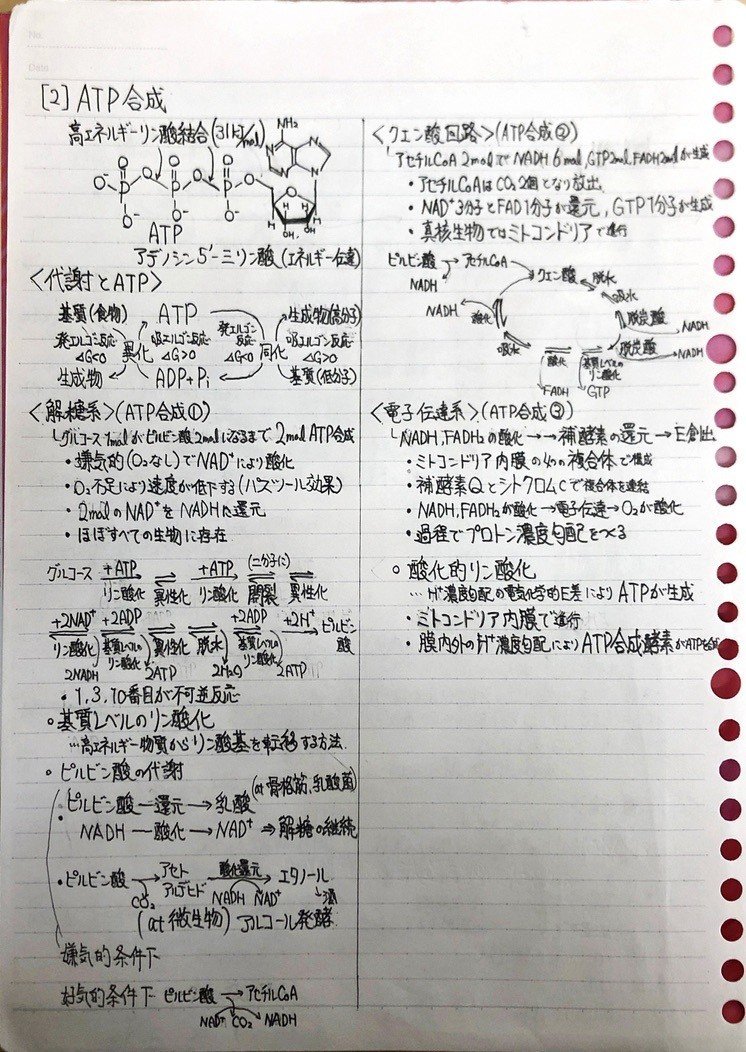 No.
Date
[2] ATP合成
高エネルギーリン酸結合(31kJ/mol)
NH₂
N
N
N
N
O O O
O⁻ P O P O P O
O⁻ O⁻ O⁻
O
H H
H H
OH OH
ATP
アデノシン5'-三リン酸(エネルギー伝達)
<代謝とATP>
基質(食物) ATP 生成物(高分子)
発エルゴン反応 ΔG<0 異化 吸エルゴン反応 ΔG>0 発エルゴン反応 ΔG<0 同化 吸エルゴン反応 ΔG>0
生成物 ADP+Pi 基質(低分子)
<解糖系>(ATP合成①)
グルコース1molがピルビン酸2molになるまで2molATP合成
・嫌気的(O₂なし)でNAD⁺により酸化
・O₂不足により速度が低下する(パスツール効果)
・2molのNAD⁺をNADHに還元
・ほぼすべての生物に存在
グルコース +ATP → リン酸化 ⇌ 異性化 +ATP → リン酸化 (二分子に) ⇌ 開裂 ⇌ 異性化
+2NAD⁺ リン酸化 2NADH +2ADP 基質レベルのリン酸化 2ATP 異性化 脱水 2H₂O +2ADP 基質レベルのリン酸化 2ATP +2H⁺ → ピルビン酸
・1,3,10番目が不可逆反応
○基質レベルのリン酸化
…高エネルギー物質からリン酸基を転移する方法
○ピルビン酸の代謝
・ピルビン酸─還元→乳酸(at骨格筋,乳酸菌)
NADH─酸化→NAD⁺⇒解糖の継続
・ピルビン酸 → アセトアルデヒド 酸化還元 → エタノール
CO₂ NADH NAD⁺ ↓酒
(at微生物) アルコール発酵
嫌気的条件下
好気的条件下 ピルビン酸 → アセチルCoA
NAD⁺ CO₂ NADH
<クエン酸回路>(ATP合成②)
アセチルCoA 2molでNADH 6mol,GTP2mol,FADH2molが生成
・アセチルCoAはCO₂2個となり放出
・NAD⁺3分子とFAD1分子が還元,GTP1分子が生成
・真核生物ではミトコンドリアで進行
ピルビン酸 → アセチルCoA クエン酸 脱水
NADH 吸水
NADH 酸化 脱炭酸 NADH
吸水 酸化 基質レベルのリン酸化 脱炭酸 NADH
FADH GTP
<電子伝達系>(ATP合成③)
NADH,FADH₂の酸化→→補酵素の還元→E創出
・ミトコンドリア内膜の4つの複合体で構成
・補酵素QとシトクロムCで複合体を連結
・NADH,FADH₂が酸化→電子伝達→O₂が酸化
・過程でプロトン濃度勾配をつくる
○酸化的リン酸化
…H⁺濃度勾配の電気化学的E差によりATPが生成
・ミトコンドリア内膜で進行
・膜内外のH⁺濃度勾配によりATP合成酵素がATPを合成